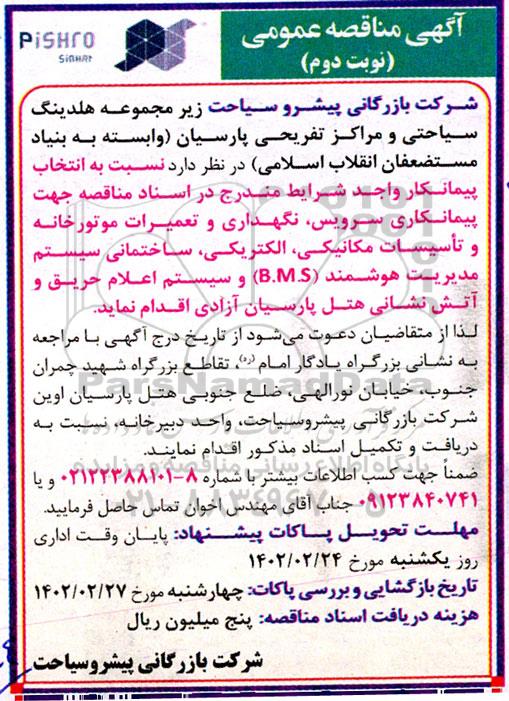 آگهی مناقصه عمومی
(نوبت دوم)
PiSHRO
SiAHAT
شرکت بازرگانی پیشرو سیاحت زیر مجموعه هلدینگ
سیاحتی و مراکز تفریحی پارسیان (وابسته به بنیاد
مستضعفان انقلاب اسلامی) در نظر دارد نسبت به انتخاب
پیمانکار واجد شرایط مندرج در اسناد مناقصه جهت
پیمانکاری سرویس، نگهداری و تعمیرات موتورخانه
و تأسیسات مکانیکی، الکتریکی، ساختمانی سیستم
مدیریت هوشمند (B.M.S) و سیستم اعلام حریق و
آتش نشانی هتل پارسیان آزادی اقدام نماید.
لذا از متقاضیان دعوت می‌شود از تاریخ درج آگهی با مراجعه
به نشانی بزرگراه یادگار امام (ره)، تقاطع بزرگراه شهید چمران
جنوب، خیابان نورالهی، ضلع جنوبی هتل پارسیان اوین
شرکت بازرگانی پیشروسیاحت، واحد دبیرخانه، نسبت به
دریافت و تکمیل اسناد مذکور اقدام نمایند.
ضمناً جهت کسب اطلاعات بیشتر با شماره ۸-۰۲۱۲۲۳۸۸۱۰۱ و یا
۰۹۱۲۳۸۴۰۷۴۱ جناب آقای مهندس اخوان تماس حاصل فرمایید.
مهلت تحویل پاکات پیشنهاد: پایان وقت اداری
روز یکشنبه مورخ ۱۴۰۲/۰۲/۲۴
تاریخ بازگشایی و بررسی پاکات: چهارشنبه مورخ ۱۴۰۲/۰۲/۲۷
هزینه دریافت اسناد مناقصه: پنج میلیون ریال
شرکت بازرگانی پیشروسیاحت
ParsNamadData
پایگاه اطلاع رسانی مناقصه و مزایده
۰۲۱-۸۸۳۴۹۶۷۰-۵